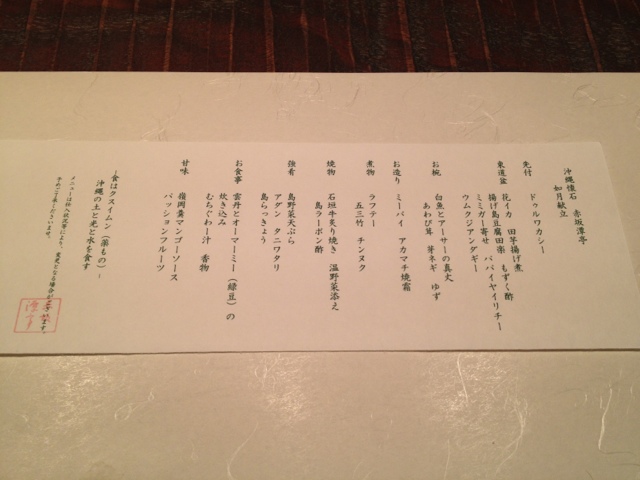 沖縄懐石 赤坂潭亭
如月献立
先付 ドゥルワカシー
東道盆 花イカ 田芋揚げ煮
揚げ島豆腐田楽 もずく酢
ミミガー寄せ パパイヤイリチー
ウムクジアンダギー
お椀 白魚とアーサーの真丈
あわび茸 芽ネギ ゆず
お造り ミーバイ アカマチ焼霜
煮物 ラフテー
五三竹 チンヌク
焼物 石垣牛炙り焼き 温野菜添え
島ラー油ポン酢
強肴 島野菜天ぷら
アダン タニワタリ
島らっきょう
お食事 雲丹とオーマーミー（緑豆）の
炊き込み
むるぐわー汁 香物
甘味 指岡糞マンゴーソース
パッションフルーツ
~食はクスイムン（薬もの）~
沖縄の土と光と水を食す
メニューは仕入状況等により、変更となる場合がございます。
予めご了承くださいませ。